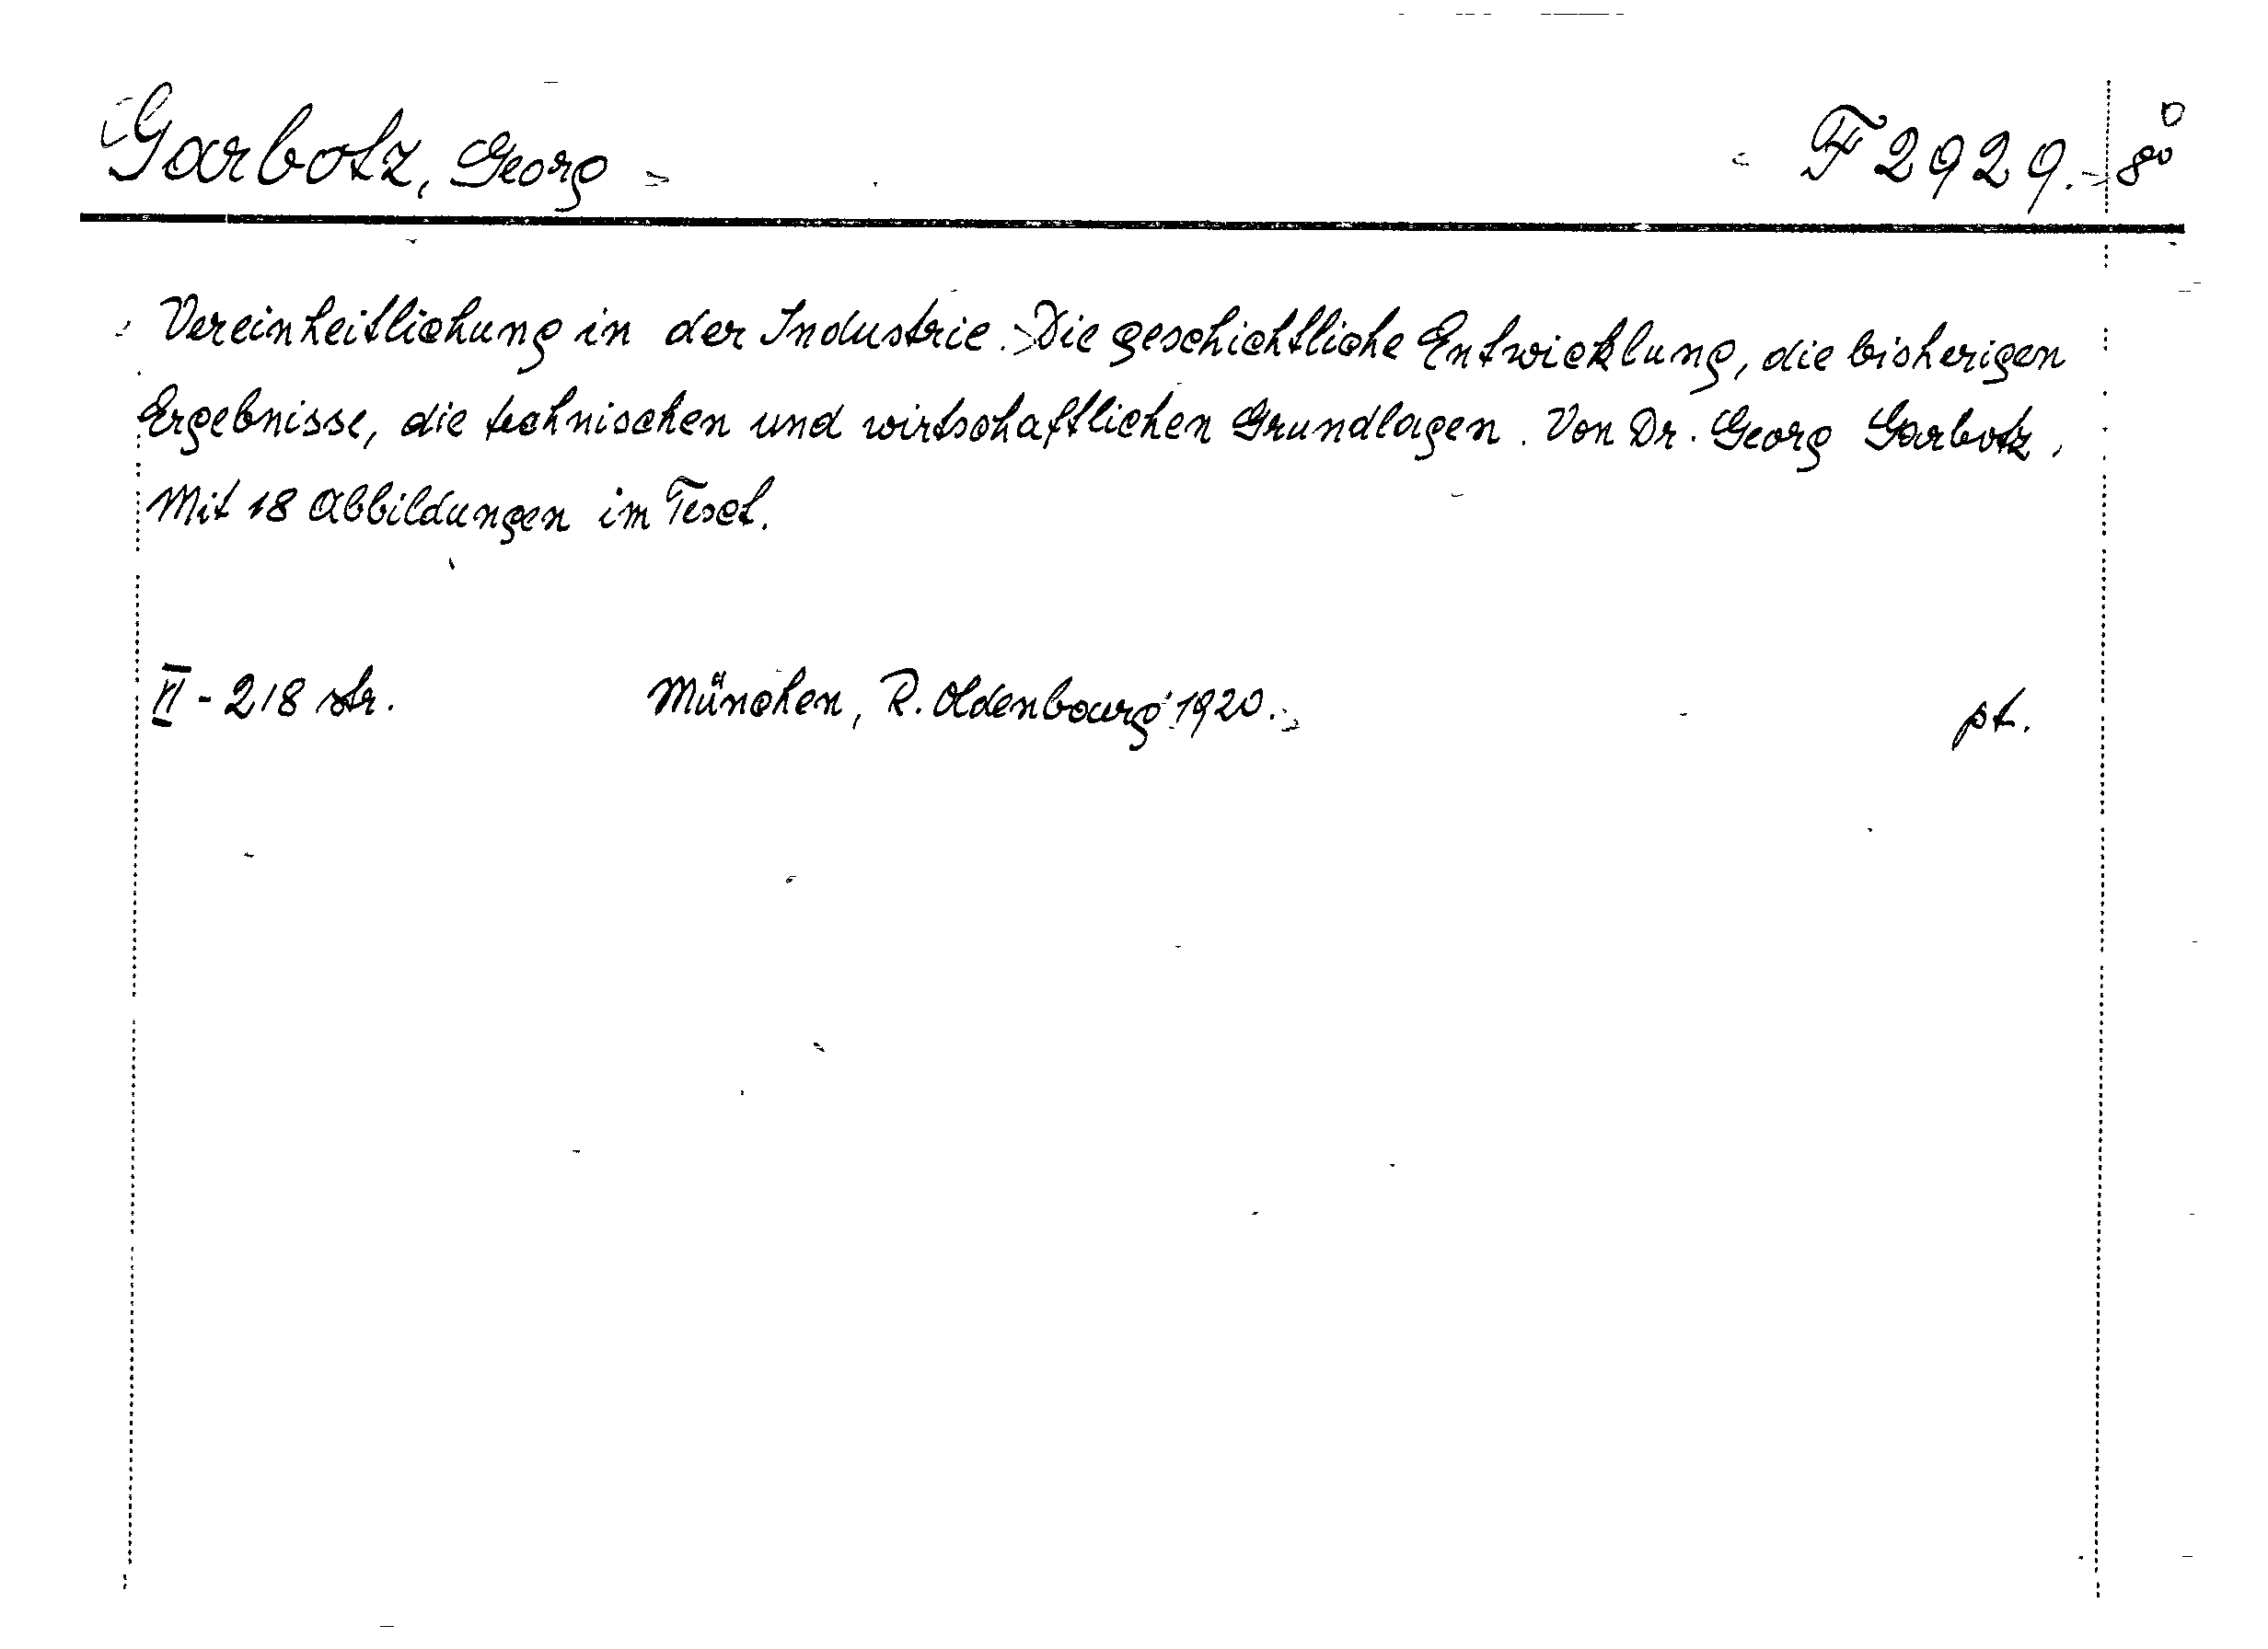 Garbotz, Georg F 2929. 8°
Vereinheitlichung in der Industrie. Die geschichtliche Entwicklung, die bisherigen
Ergebnisse, die technischen und wirtschaftlichen Grundlagen. Von Dr. Georg Garbotz.
Mit 18 Abbildungen im Text.
VI - 218 str. München, R. Oldenbourg 1920. pt.